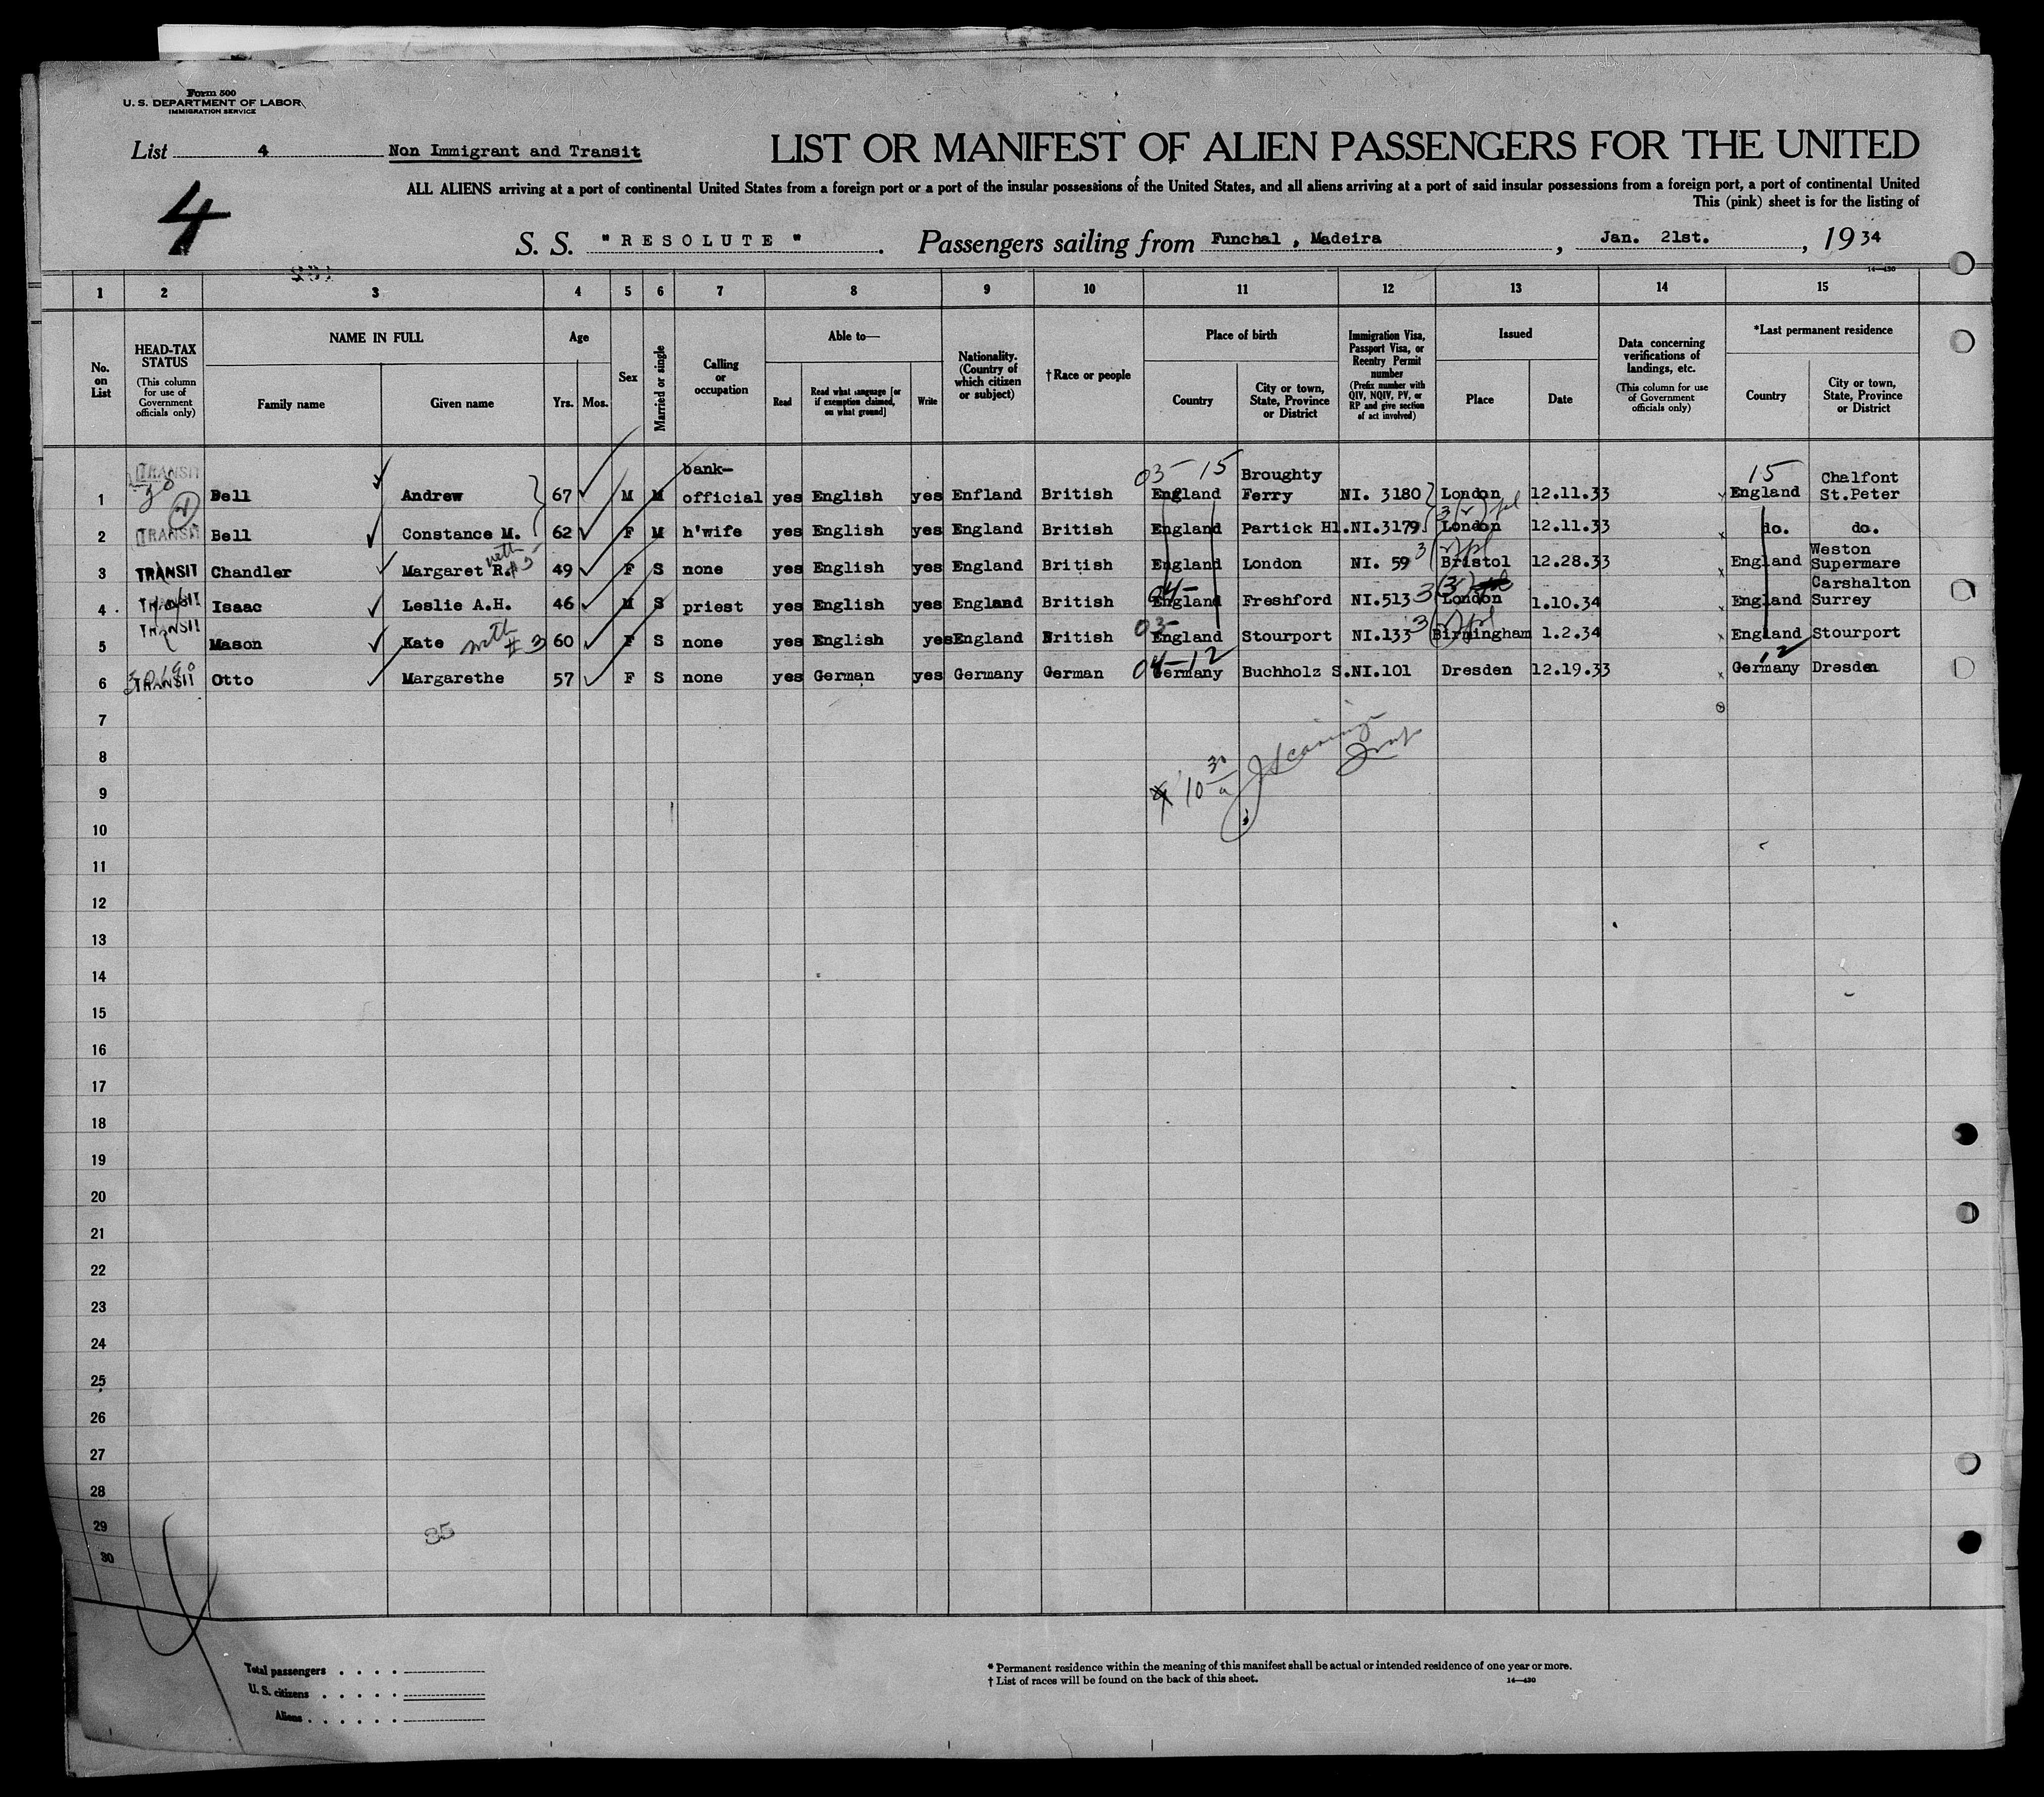 Form 500
U. S. DEPARTMENT OF LABOR
IMMIGRATION SERVICE
List 4 Non Immigrant and Transit
LIST OR MANIFEST OF ALIEN PASSENGERS FOR THE UNITED
4
ALL ALIENS arriving at a port of continental United States from a foreign port or a port of the insular possessions of the United States, and all aliens arriving at a port of said insular possessions from a foreign port, a port of continental United
This (pink) sheet is for the listing of
S. S. "RESOLUTE". Passengers sailing from Funchal, Madeira, Jan. 21st., 1934
14—430
1 2 3 4 5 6 7 8 9 10 11 12 13 14 15
No. on List
HEAD-TAX STATUS (This column for use of Government officials only)
NAME IN FULL
Family name
Given name
Age
Yrs. Mos.
Sex
Married or single
Calling or occupation
Able to—
Read
Read what language [or if exemption claimed, on what ground]
Write
Nationality. (Country of which citizen or subject)
†Race or people
Place of birth
Country
City or town, State, Province or District
Immigration Visa, Passport Visa, or Reentry Permit number (Prefix number with QIV, NQIV, PV, or RP and give section of act involved)
Issued
Place
Date
Data concerning verifications of landings, etc. (This column for use of Government officials only)
*Last permanent residence
Country
City or town, State, Province or District
1 TRANSIT Bell Andrew 67 M M bank-official yes English yes Enfland British 03-15 England Broughty Ferry NI. 3180 London 12.11.33 15 England Chalfont St.Peter
2 TRANSIT Bell Constance M. 62 F M h'wife yes English yes England British England Partick Hl. NI.3179 London 12.11.33 do. do.
3 TRANSIT Chandler Margaret R. with #5 49 F S none yes English yes England British England London NI. 59 Bristol 12.28.33 England Weston Supermare
4 TRANSIT Isaac Leslie A.H. 46 M S priest yes English yes England British 04- England Freshford NI.513 London 1.10.34 England Carshalton Surrey
5 TRANSIT Mason Kate with #3 60 F S none yes English yes England British 03- England Stourport NI.133 Birmingham 1.2.34 England Stourport
6 TRANSIT Otto Margarethe 57 F S none yes German yes Germany German 04-12 Germany Buchholz S. NI.101 Dresden 12.19.33 12 Germany Dresden
7
8
9
10
11
12
13
14
15
16
17
18
19
20
21
22
23
24
25
26
27
28
29
30
35
Total passengers
U. S. citizens
Aliens
* Permanent residence within the meaning of this manifest shall be actual or intended residence of one year or more.
† List of races will be found on the back of this sheet.
14—430